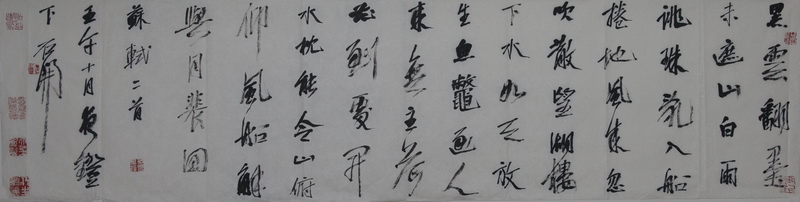 黑雲翻墨
未遮山白雨
跳珠亂入船
捲地風來忽
吹散望湖樓
下水如天放
生魚鱉逐人
來無主荷
花到處開
水枕能令山俯
仰風船解
與月裴回
蘇軾二首
壬午十月夜鐙
下石開